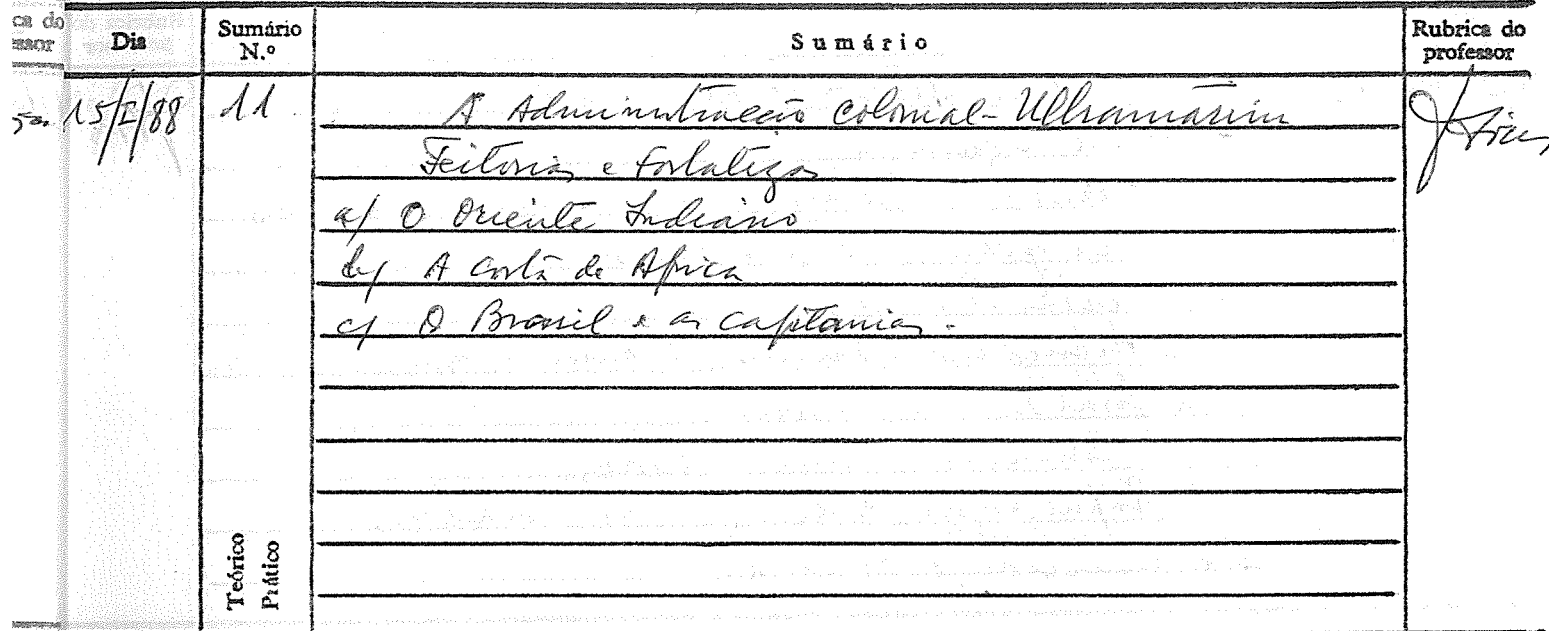 ca do
essor
Dia
Sumário
N.º
Sumário
Rubrica do
professor
15/I/88
11
A Administração colonial-Ultramarina
Feitorias e Fortalezas
a) O Oriente Indiano
b) A Costa de Africa
c) O Brasil e as capitanias.
Teórico
Prático